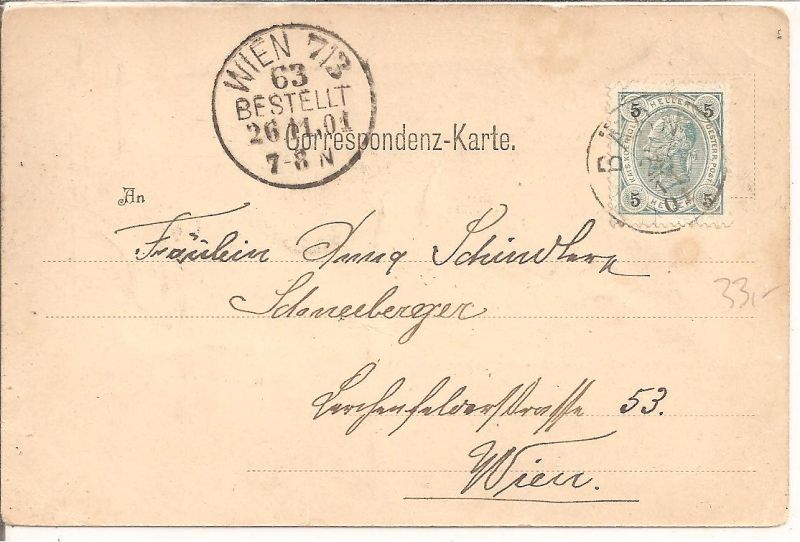 WIEN 7/3
63
BESTELLT
26.11.01
7-8 N
Correspondenz-Karte.
5 HELLER 5
5 HELLER 5
An
Fräulein Anna Schindler
Schneeberger
Lerchenfelderstrasse 53.
Wien.
33,-